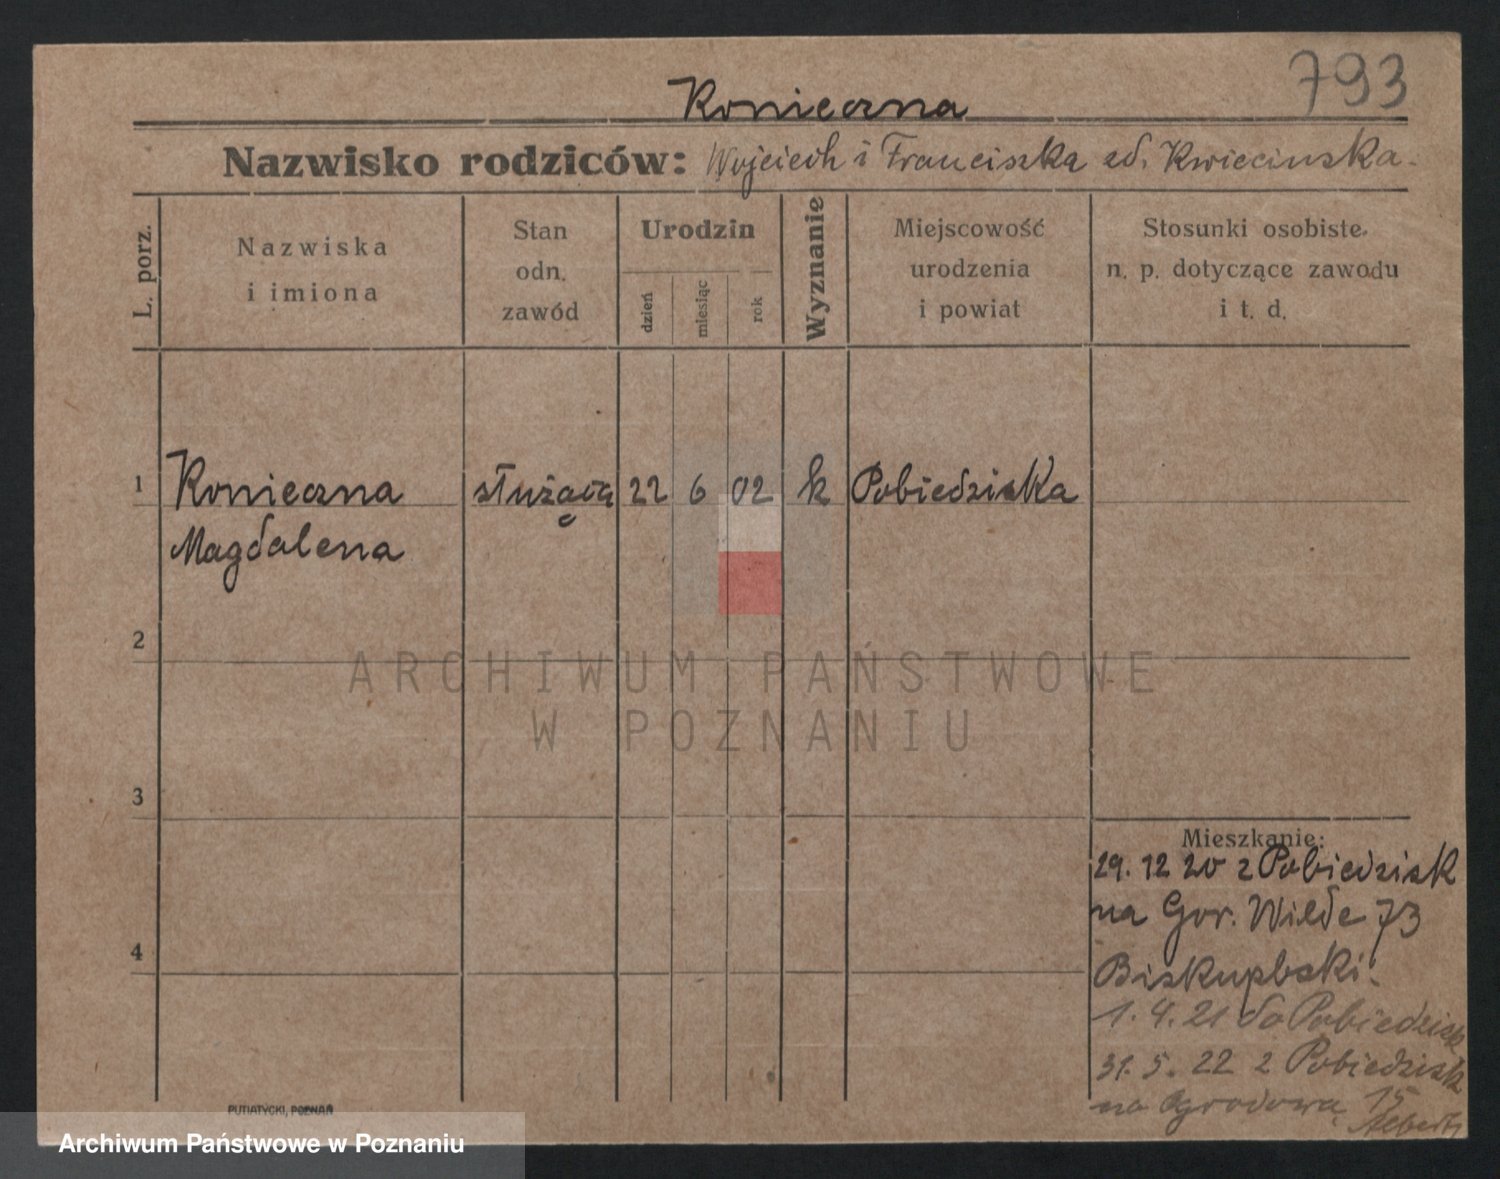 793
Konieczna
Nazwisko rodziców: Wojciech i Franciszka zd. Kwiecinska
L. porz.
Nazwiska
i imiona
Stan
odn.
zawód
Urodzin
dzień
miesiąc
rok
Wyznanie
Miejscowość
urodzenia
i powiat
Stosunki osobiste
n. p. dotyczące zawodu
i t. d.
1 Konieczna służąca 22 6 02 k Pobiedziska
Magdalena
2
ARCHIWUM PAŃSTWOWE
W POZNANIU
3
Mieszkanie:
29. 12 20 z Pobiedzisk
na Gór. Wilde 73
4
1. 4. 21 do Pobiedzisk
31. 5. 22 z Pobiedzisk
na Ogrodową 15
PUTIATYCKI, POZNAŃ
Archiwum Państwowe w Poznaniu